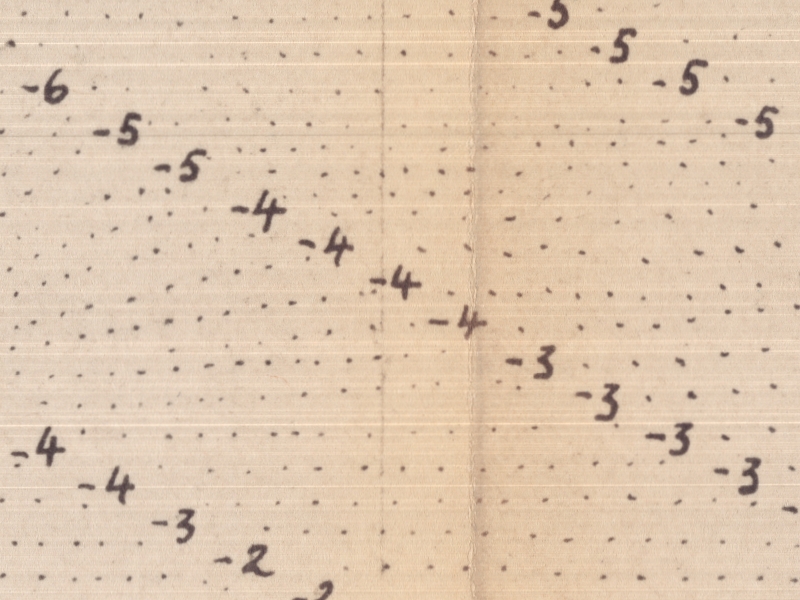 -5
-5
-5
-5
-6
-5
-5
-4
-4
-4
-4
-3
-3
-3
-3
-4
-4
-3
-2
-2